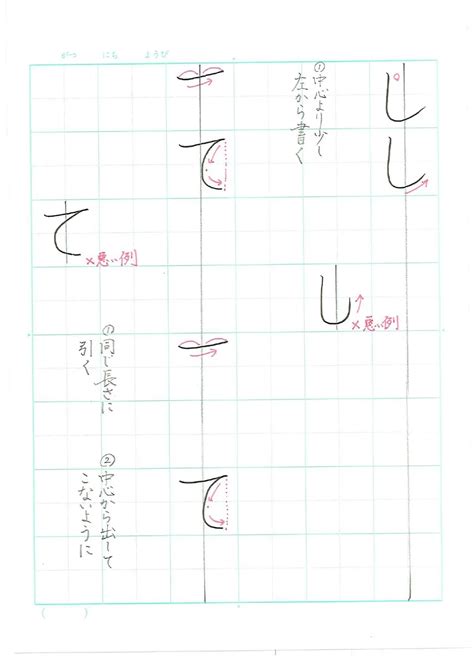 がつ にち ようび
し
①中心より少し
左から書く
し
し
×悪い例
て
て
①同じ長さに
引く
②中心から出して
こないように
て
×悪い例
( )